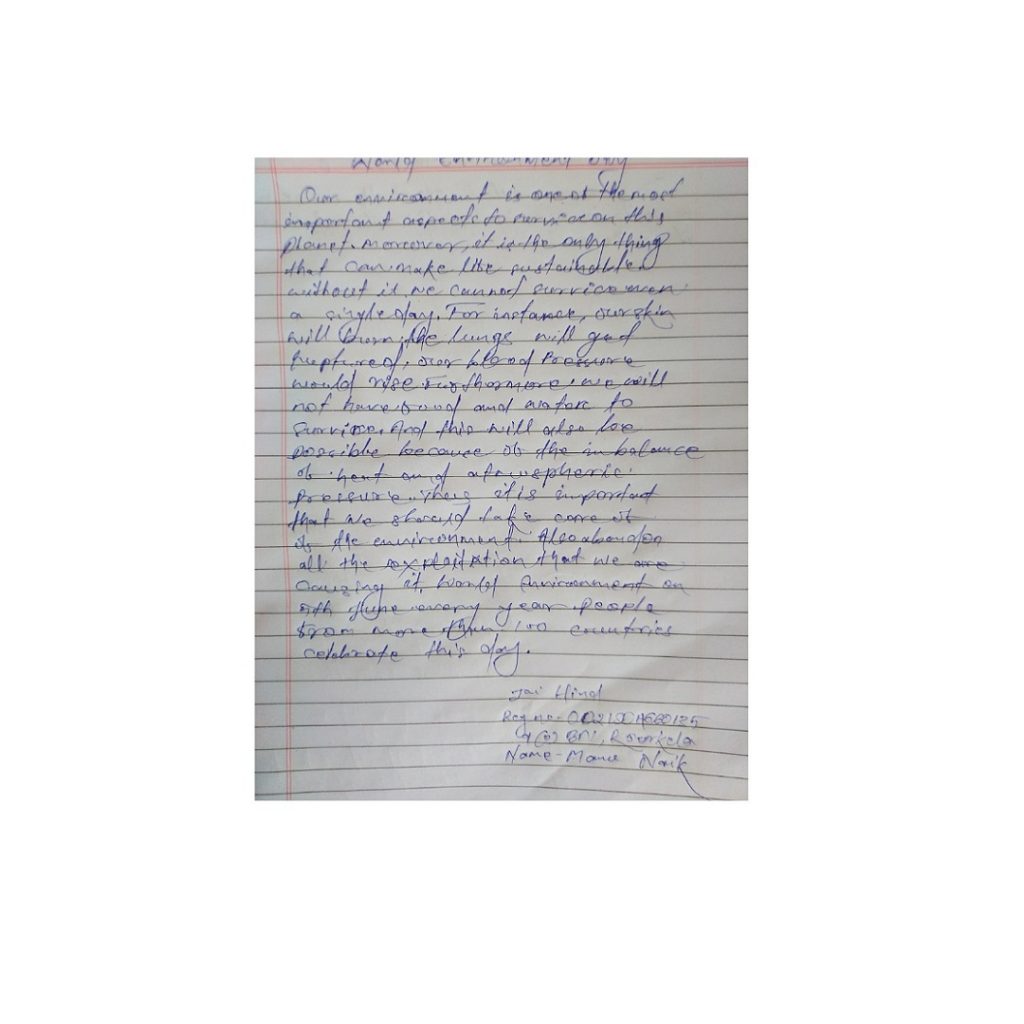 World Environment Day
Our environment is one of the most
important aspects to survive on this
planet. Moreover, it is the only thing
that can make life sustainable
without it we cannot survive even
a single day. For instance, our skin
will burn, the lungs will get
ruptured, our blood Pressure
would rise. Furthermore, we will
not have food and water to
survive. And this will also be
possible because of the imbalance
of heat and atmospheric
Pressure. Thus it is important
that we should take care of
of the environment. Also abandon
all the exploitation that we are
causing it. World Environment on
5th June every year people
from more than 100 countries
celebrate this day.
Jai Hind
Reg no-
BN, Rourkela
Name- Naik